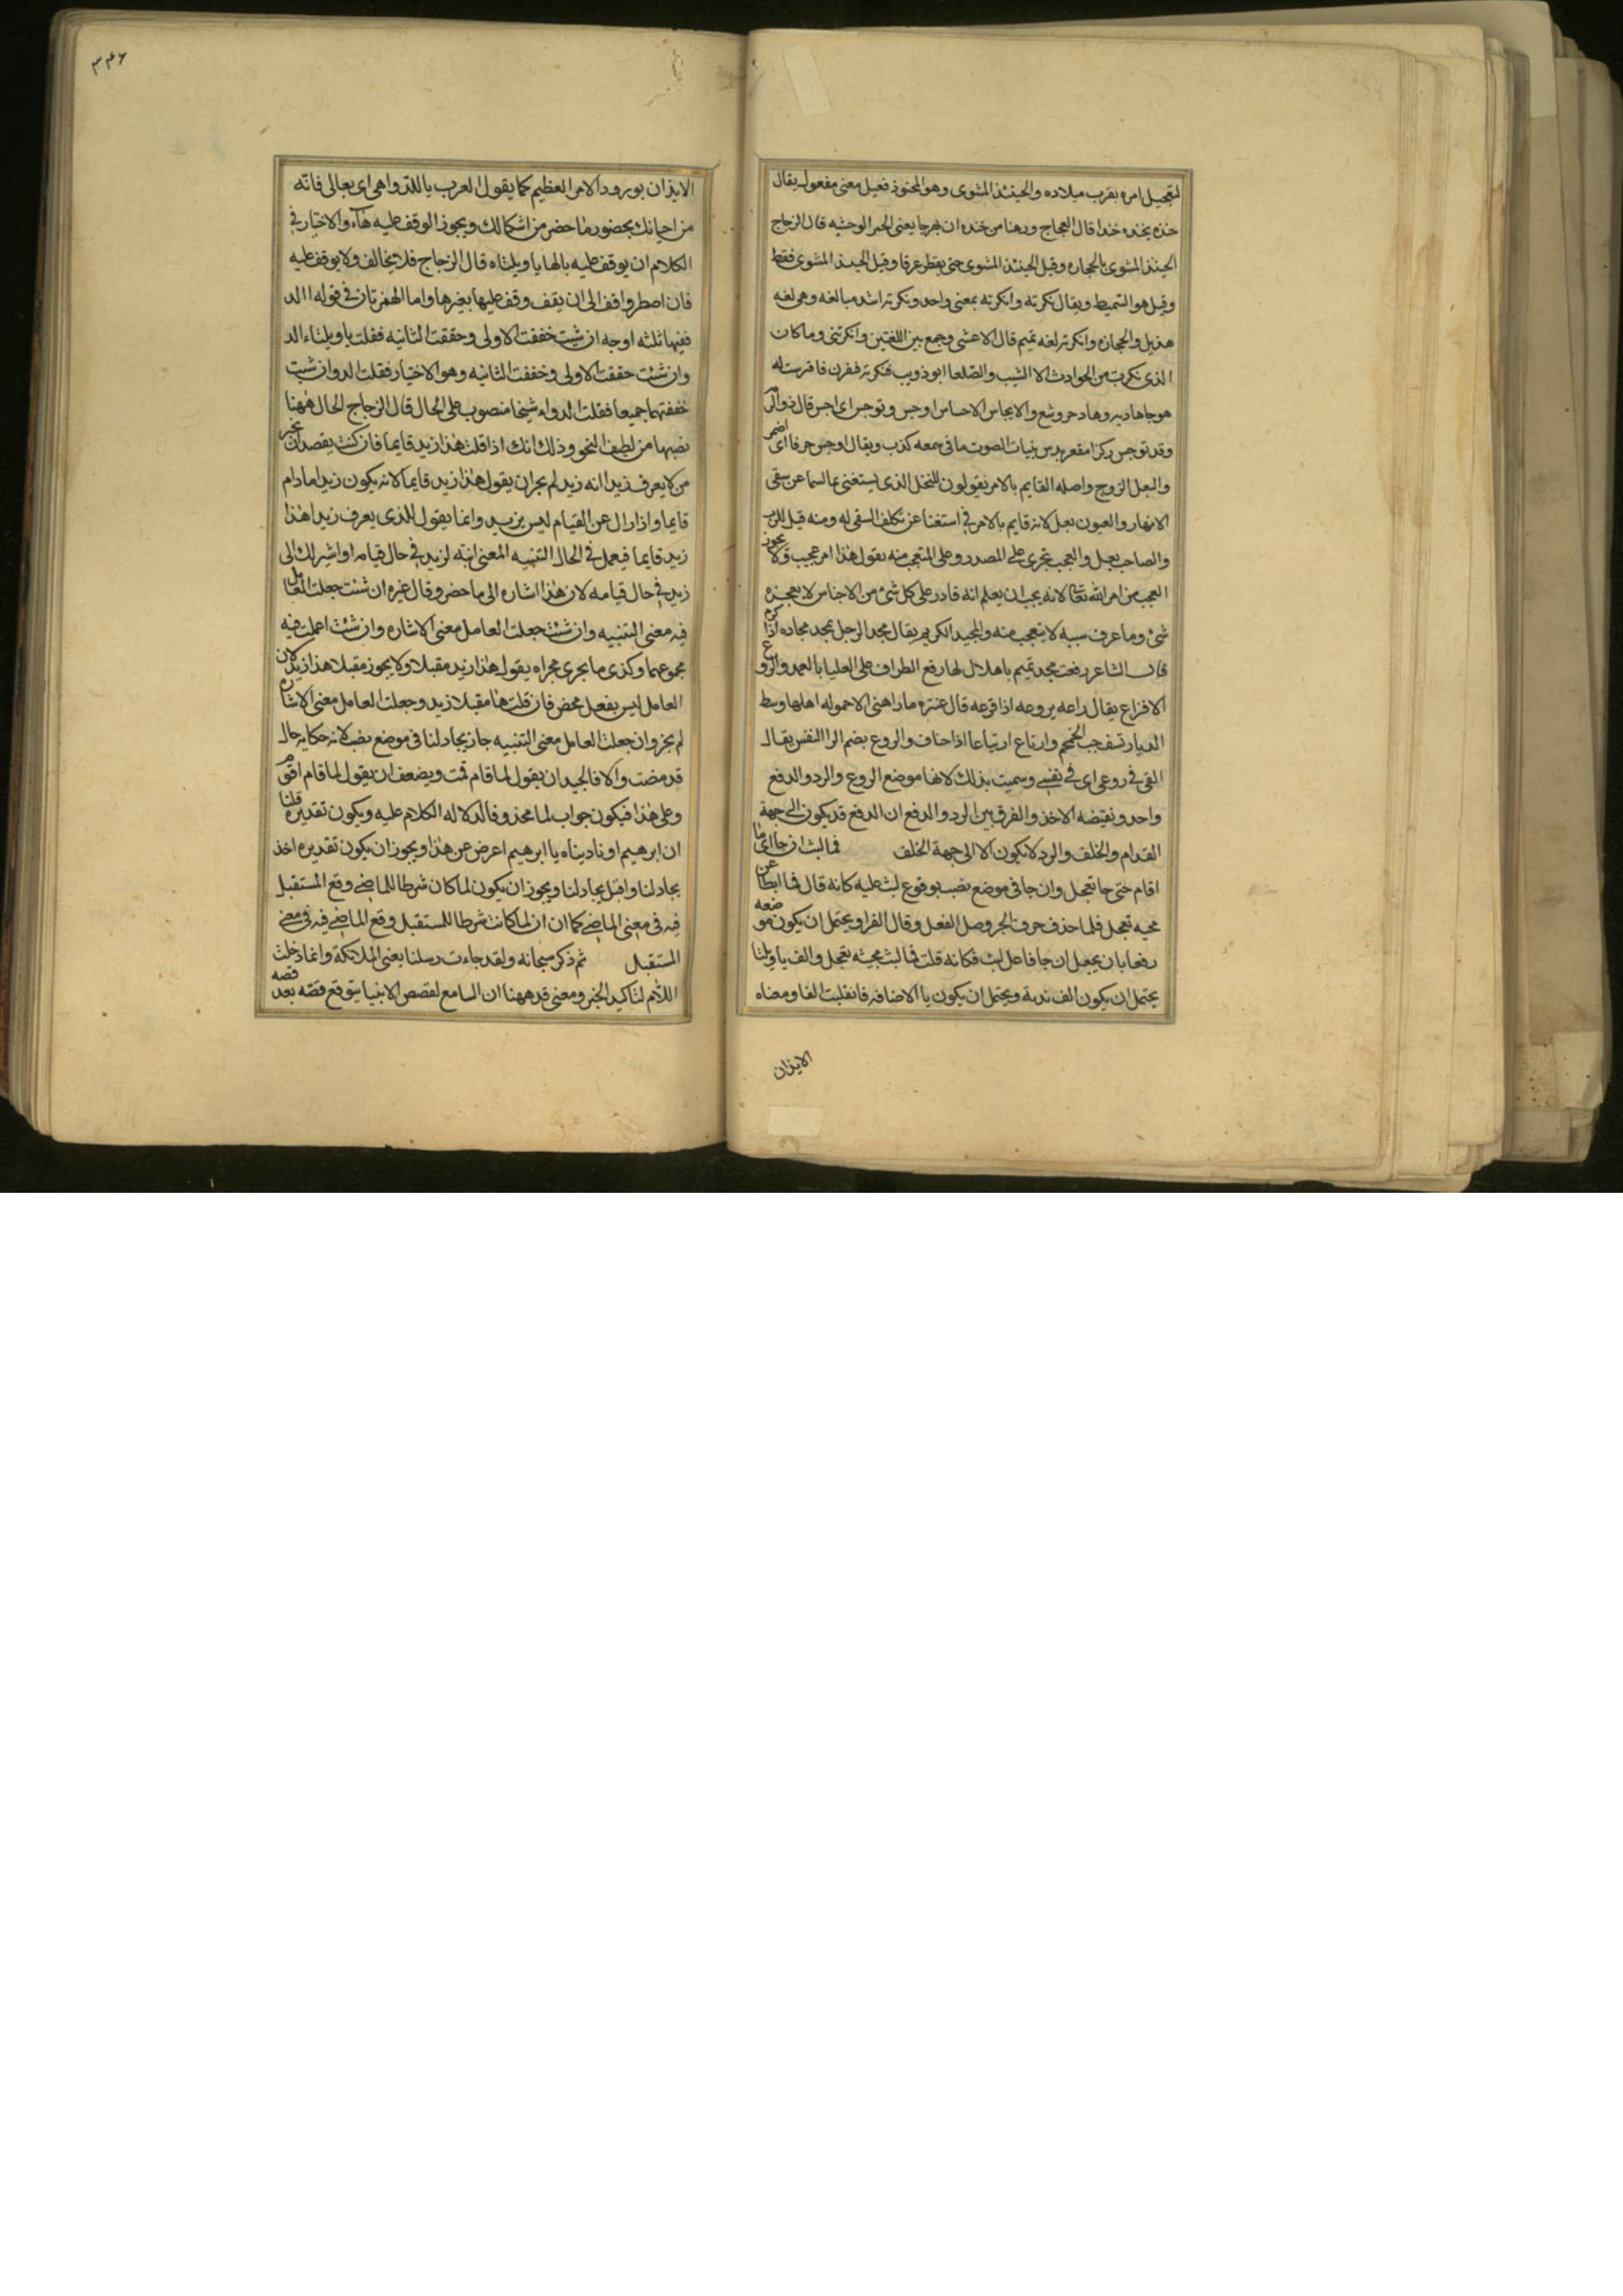 لتعجيل امره بقرب ميلاده والحينئذ المشوى وهو المحنوذ فعيل معنى مفعول يقال
حنذه يحنذه حنذا قال العجاج ورهبا من حنذه ان يهرجا يعنى الحمر الوحشيه قال الزجاج
الحينذ المشوى بالحجاره وقيل الحينئذ المشوى حتى يقطر عرقا وقيل الحينذ المشوى فقط
وقيل هو السميط ويقال نكرته وانكرته بمعنى واحد ونكرته اشد مبالغه وهى لغه
هذيل والحجاز وانكرته لغه تميم قال الاعشى وجمع بين اللغتين وانكرتنى وما كان
الذى نكرت من الحوادث الا الشيب والصلعا ابو ذويب فنكرته فنفرن فافترست له
هوجا هاديه وهاد جروشع والايجاس الاحساس اوجس وتوجس اى احس قال ذو الرم
وقد توجس ركزا مقفر ندس بنباة الصوت ما فى سمعه كذب ويقال اوجس خوفا اى اضمر
والبعل الزوج واصله القايم بالامر يقولون للنخل الذى يستغنى بماء السما عن سقى
الانهار والعيون بعل لانه قايم بالامر فى استغنا عن تكلف السقى له ومنه قيل للرب
والصاحب بعل والعجب يجرى على المصدر وعلى المتعجب منه يقول هذا امر عجيب ولا يجوز
العجب من امر الله تعالى لانه يجب ان يعلم انه قادر على كل شئ من الاجناس لا يعجزه
شئ وما عرف سببه لا يتعجب منه والمجيد الكريم يقال مجد الرجل يمجد مجاده اذا كرم
قال الشاعر رفعت مجد تميم ياهلال لها رفع الطراف على العليا بالعمد والروع
الافزاع يقال راعه يروعه اذا افزعه قال عنتره ما راعنى الا حموله اهلها وسط
الديار تسف حب الخمخم وارتاع ارتياعا اذا خاف والروع بضم الرا النفس يقال
القى فى روعى اى فى نفسى وسميت بذلك لانها موضع الروع والرد والدفع
واحد ونقيضه الاخذ والفرق بين الرد والدفع ان الدفع قد يكون الى جهة
القدام والخلف والرد لا يكون الا الى جهة الخلف فما لبث ان جا اى ما
اقام حتى جا بعجل وان جا فى موضع نصب بوقوع لبث عليه كانه قال فما ابطا عن
مجيه بعجل فلما حذف حرف الجر وصل الفعل وقال الفرا ويحتمل ان يكون موضعه
رفعا بان يجعل ان جا فاعل لبث فكانه قلت فما لبث مجيئه بعجل والف ياويلتا
يحتمل ان يكون الف ندبة ويحتمل ان يكون يا الاضافه فانقلبت الفا ومعناه
الايذان
٣٤٦
الايذان بورود الامر العظيم كما يقول العرب يا للدواهى اى تعالى فانه
من احيانك بحضور ما حضر من اشكالك ويجوز الوقف عليه هاء والاختيار فى
الكلام ان يوقف عليه بالها ياويلتاه قال الزجاج فلا يخالف ولا يوقف عليه
فان اضطر واقف الى ان يقف وقف عليها بغيرها واما الهمزتان فى قوله االد
ففيها ثلثه اوجه ان شيت خففت الاولى وحققت الثانيه فقلت ياويلتاء الد
وان شئت حققت الاولى وخففت الثانيه وهو الاختيار فقلت الد وان شيت
خففتهما جميعا فقلت الد واء شيخا منصوب على الحال قال الزجاج الحال ههنا
نصبها من لطيف النحو وذلك انك اذا قلت هذا زيد قايما فان كنت يقصد ان تخبر
من لا يعرف زيدا انه زيد لم يجز ان يقول هذا زيد قايما لانه يكون زيدا ما دام
قايما واذا زال عن القيام ليس بزيد وانما يقول للذى يعرف زيدا هذا
زيد قايما فيعمل فى الحال التنبيه المعنى انبه لزيد فى حال قيامه او اشير لك الى
زيد فى حال قيامه لان هذا اشاره الى ما حضر وقال غيره ان شئت جعلت العامل
فيه معنى التنبيه وان شئت جعلت العامل معنى الاشاره وان شئت اعملت فيه
مجموعهما وكذى ما يجرى مجراه يقول هذا زيد مقبلا ولا يجوز مقبلا هذا زيد لان
العامل ليس بفعل محض فان قلت ها مقبلا زيد وجعلت العامل معنى الاشاره
لم يجز وان جعلت العامل معنى التنبيه جاز يجادلنا فى موضع نصب لانه حكايه حال
قد مضت والا فالجيد ان يقول لما قام قمت ويضعف ان يقول لما قام اقوم
وعلى هذا فيكون جواب لما محذوفا لدلاله الكلام عليه ويكون تقديره قلنا
ان ابرهيم او ناديناه يا ابرهيم اعرض عن هذا ويجوز ان يكون تقديره اخذ
يجادلنا واقبل يجادلنا ويجوز ان يكون لما كان شرطا للماضى وقع المستقبل
فيه فى معنى الماضى كما ان ان لما كانت شرطا للمستقبل وقع الماضى فيه فى معنى
المستقبل ثم ذكر سبحانه ولقد جاءت رسلنا يعنى الملائكة وانما دخلت
اللام لتاكيد الخبر ومعنى قد ههنا ان السامع لقصص الانبيا يتوقع قصه بعد قصه